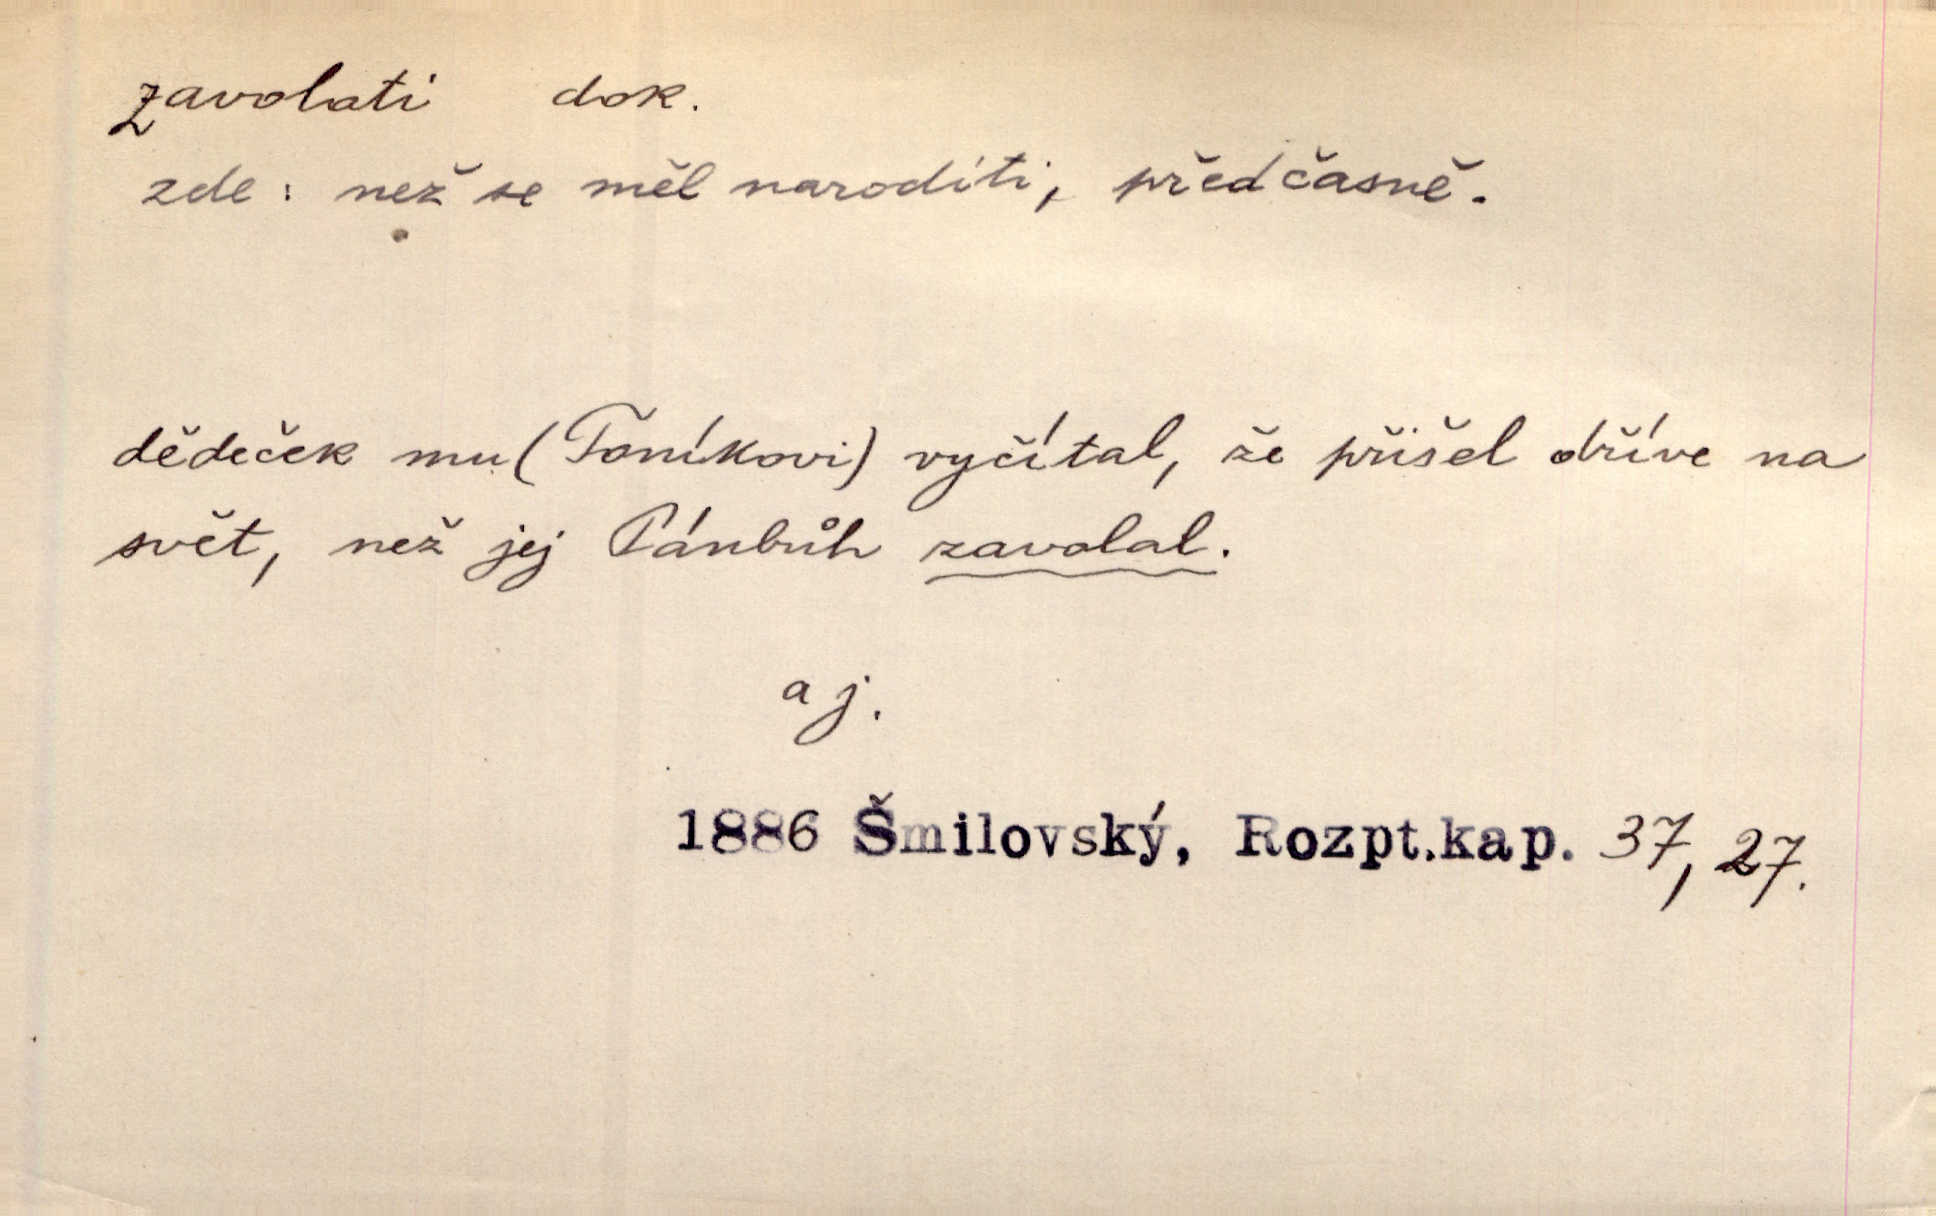 zavolati dok.
zde: než se měl naroditi, předčasně.
dědeček mu (Toníkovi) vyčítal, že přišel dříve na
svět, než jej Pánbůh zavolal.
aj.
1886 Šmilovský, Rozpt.kap. 37, 27.